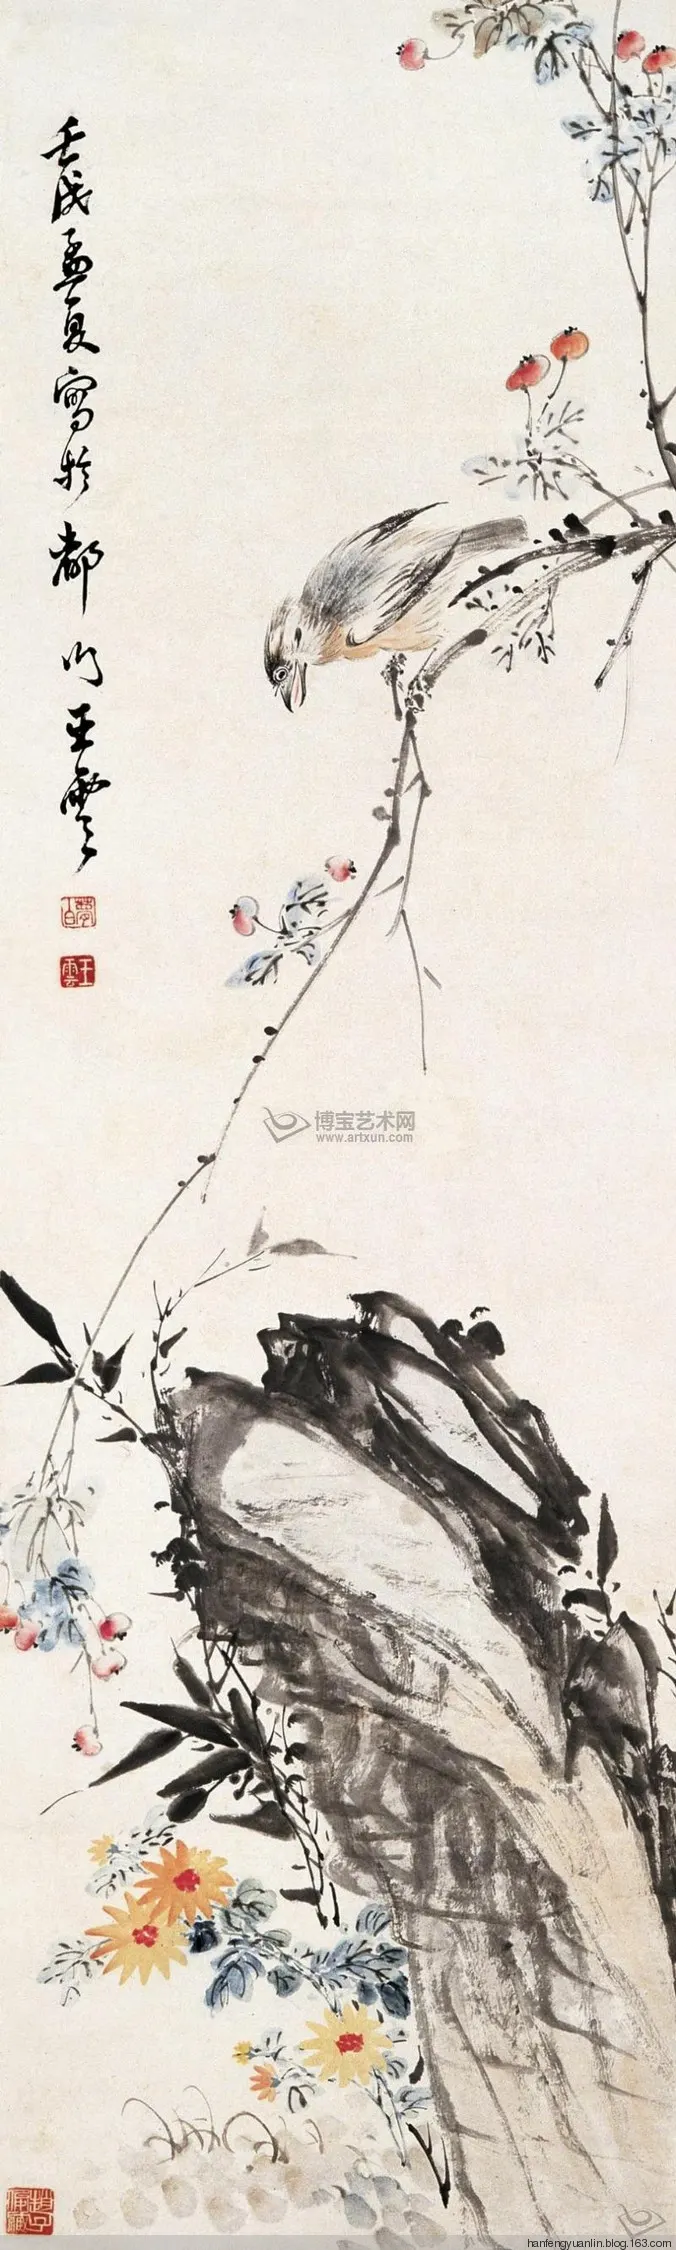 壬戌孟夏寫於都門王雲
夢白
王雲
博宝艺术网
www.artxun.com
hanfengyuanlin.blog.163.com